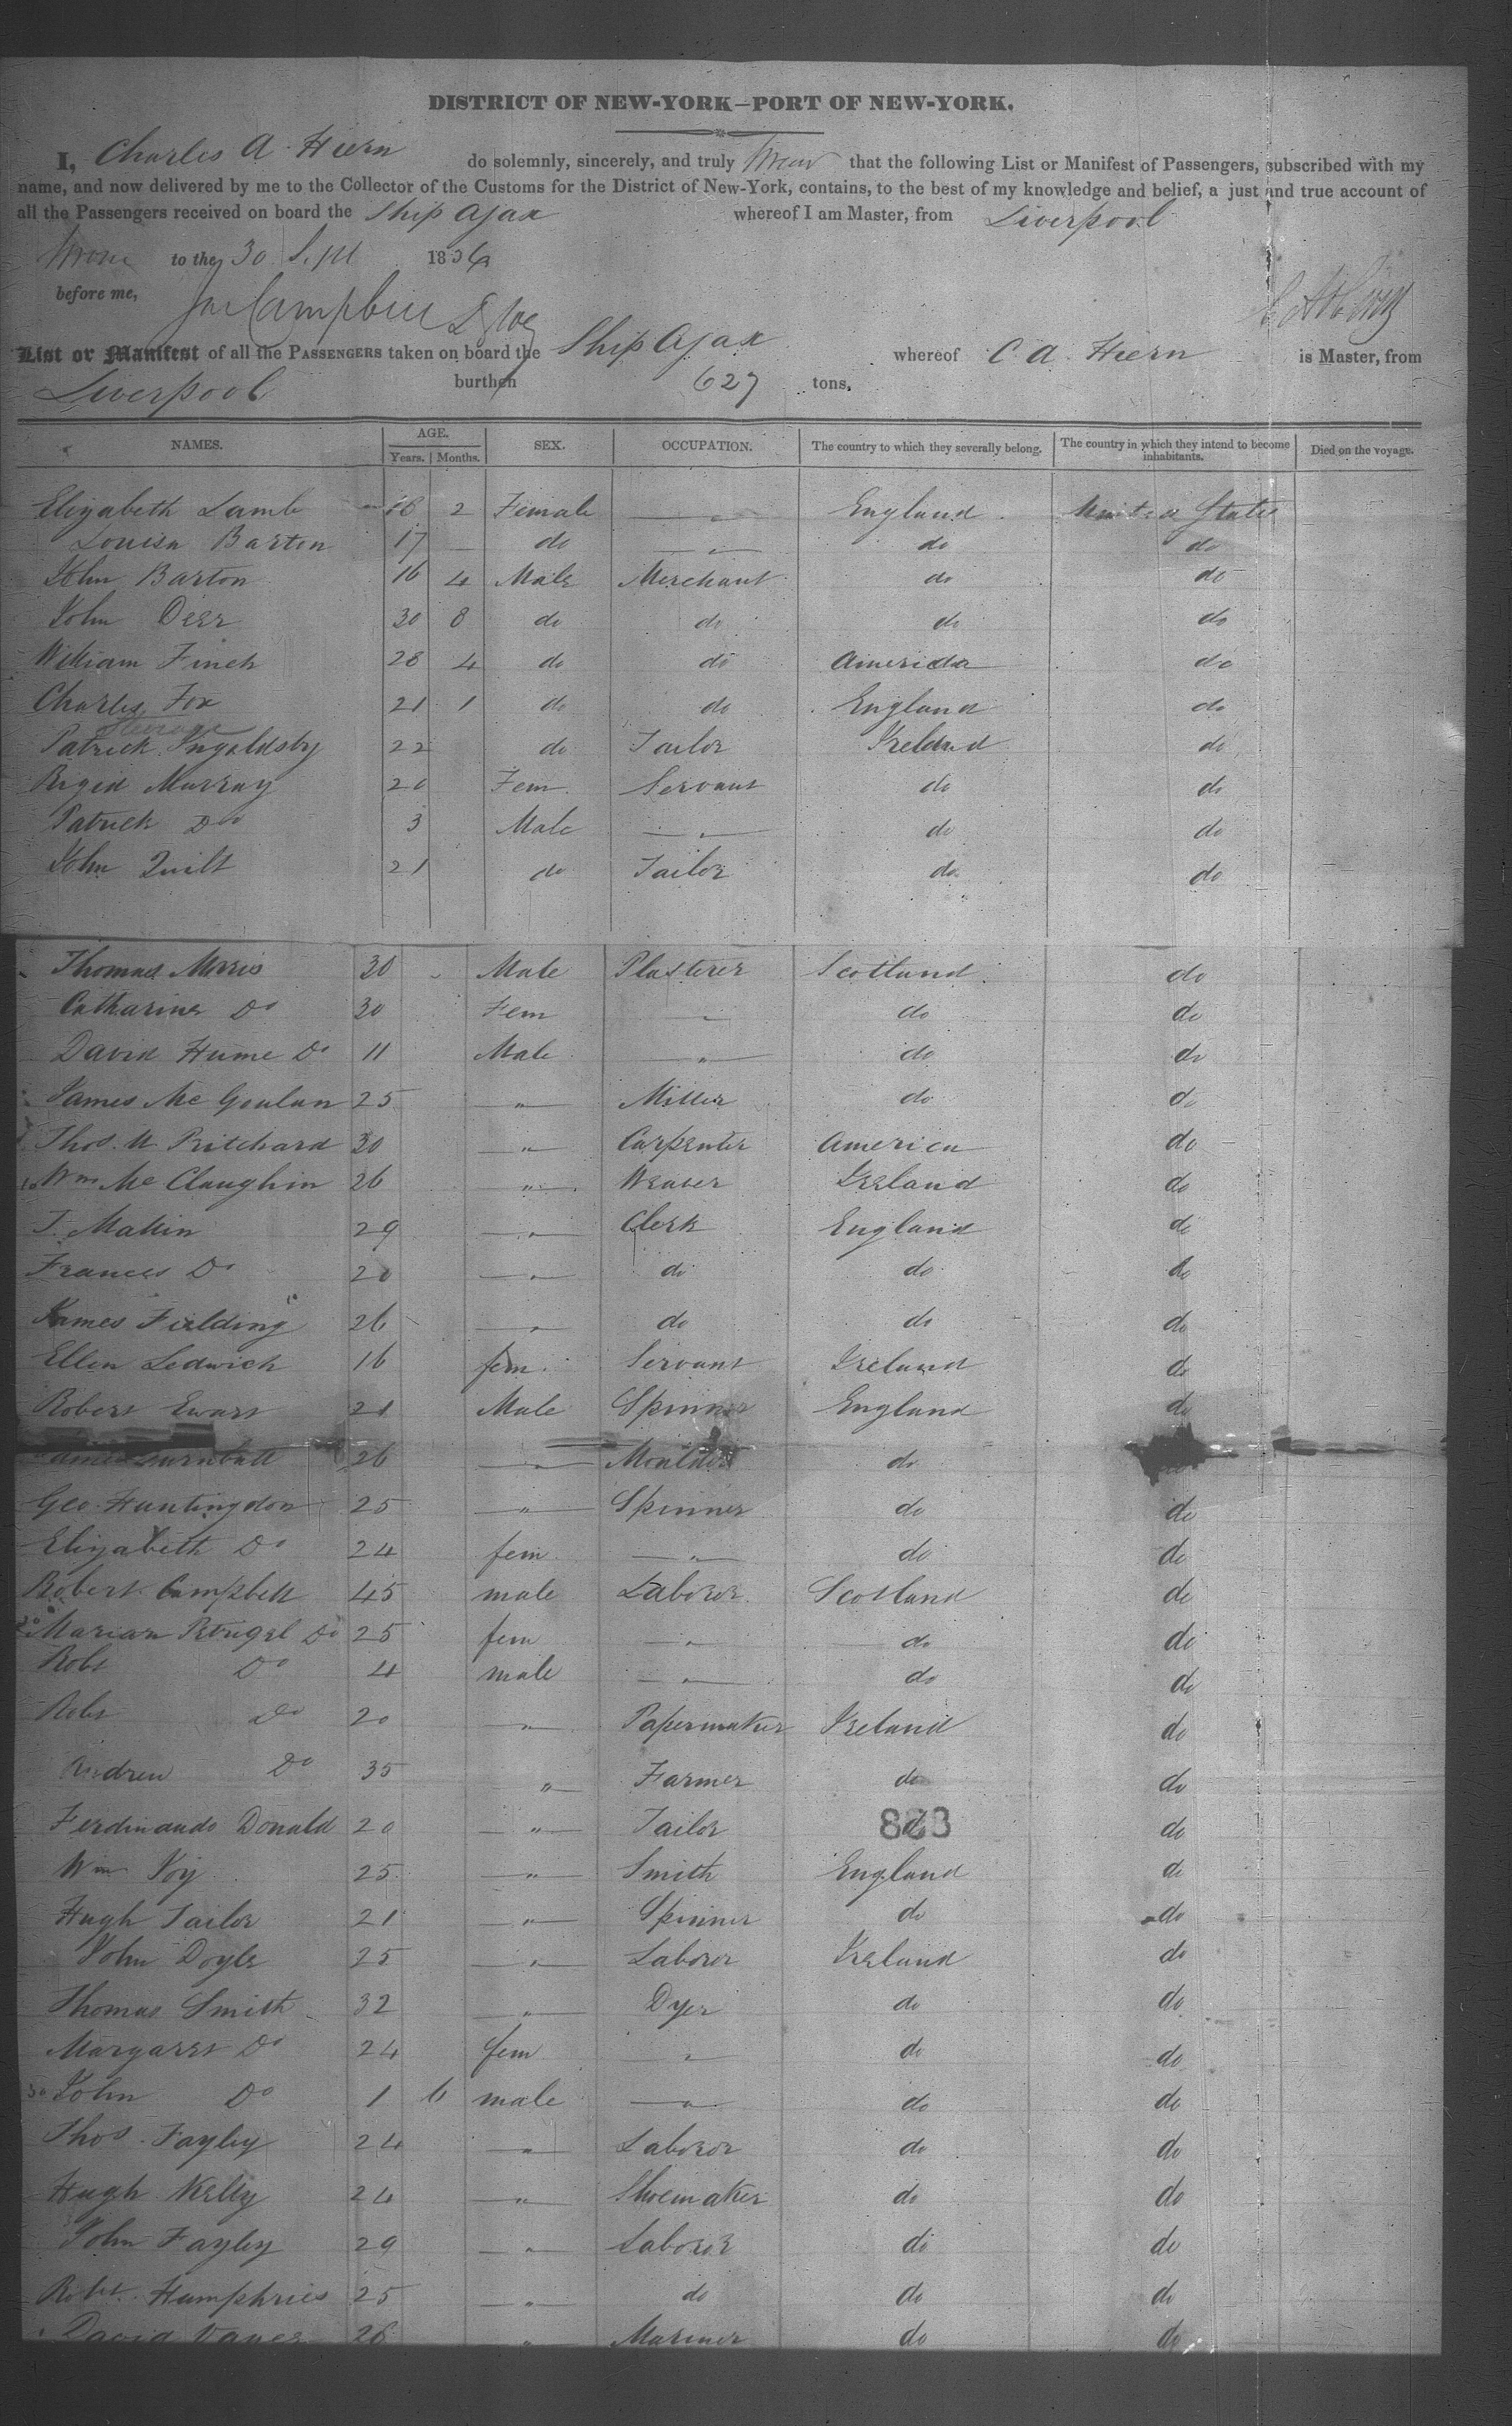 DISTRICT OF NEW-YORK—PORT OF NEW-YORK.
I, Charles A. Hiern do solemnly, sincerely, and truly swear that the following List or Manifest of Passengers, subscribed with my
name, and now delivered by me to the Collector of the Customs for the District of New-York, contains, to the best of my knowledge and belief, a just and true account of
all the Passengers received on board the Ship Ajax whereof I am Master, from Liverpool
Sworn to the 30 Sept 1836
before me,
List or Manifest of all the PASSENGERS taken on board the Ship Ajax whereof C. A. Hiern is Master, from
Liverpool burthen 627 tons.
NAMES. AGE. SEX. OCCUPATION. The country to which they severally belong. The country in which they intend to become inhabitants. Died on the voyage.
Years. Months.
Elizabeth Lamb 18 2 Female — " — England United States
Louisa Barton 17 — do — " — do do
John Barton 16 4 Male Merchant do do
John Derr 30 8 do do do do
William Finch 28 4 do do America do
Charles Fox 21 1 do do England do
Steerage
Patrick Ingoldsby 22 do Tailor Ireland do
Briged Murray 20 Fem Servant do do
Patrick Do 3 Male — " — do do
John Quilt 21 do Tailor do do
Thomas Morris 30 Male Plasterer Scotland do
Catharine Do 30 Fem — " — do do
David Hume Do 11 Male — " — do do
James Mc Goulan 25 — " — Miller do do
Thos. W Pritchard 30 — " — Carpenter America do
Wm Mc Claughin 26 — " — Weaver Ireland do
T. Mallin 29 — " — Clerk England do
Frances Do 20 — " — do do do
James Fielding 26 — " — do do do
Ellen Ledwich 16 fem Servant Ireland do
Robert Ewart 21 Male Spinner England do
James Turnbull 26 — " — Moulder do
Geo. Huntingdon 25 — " — Spinner do do
Elizabeth Do 24 fem — " — do do
Robert Campbell 45 male Laboror Scotland do
Marian Do 25 fem — " — do do
Robt Do 4 male — " — do do
Robt Do 20 — " — Papermaker Ireland do
Andrew Do 35 — " — Farmer do do
Ferdinando Donald 20 — " — Tailor do do
883
Wm Foy 25 — " — Smith England do
Hugh Tailor 21 — " — Spinner do do
John Doyle 25 — " — Laboror Ireland do
Thomas Smith 32 — " — Dyer do do
Margaret Do 24 fem — " — do do
30 John Do 1 6 male — " — do do
Thos. Fayley 24 — " — Laboror do do
Hugh Kelly 24 — " — Shoemaker do do
John Fayley 29 — " — Laboror do do
Robt. Humphries 25 — " — do do do
David 26 — " — Mariner do do